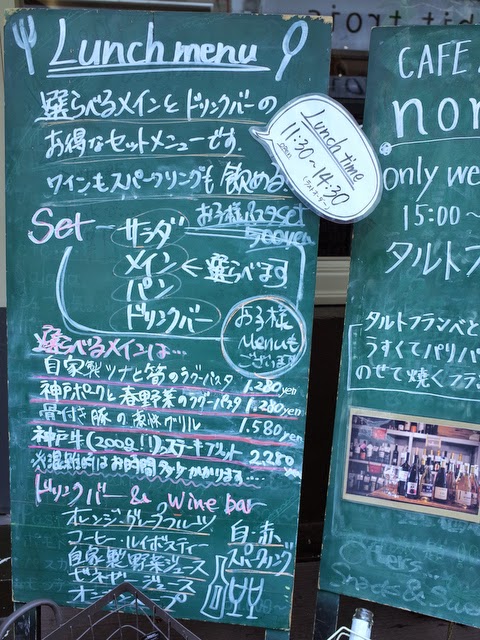 Lunch menu
選らべるメインとドリンクバーの
お得なセットメニューです.
ワインもスパークリングも飲める
Lunch time
open
11:30~14:30
(ラストオーダー)
Set
お子様パスタset
500yen
サラダ
メイン ← 選らべます
パン
ドリンクバー
お子様
Menuも
ございます
選らべるメインは…
自家製ツナと筍のラグーパスタ 1.280yen
神戸ポークと春野菜のラグーパスタ 1.280yen
骨付き豚の炭火グリル 1.580yen
神戸牛(200g!!)ステーキプレート 2280yen
※混雑時はお時間少々かかります....
ドリンクバー & wine bar
オレンジ・グレープフルーツ
コーヒー・ルイボスティー
自家製野菜ジュース
ジュース
白・赤
スパークリング
CAFE
nor
only we
15:00~
タルトフ
タルトフランベと
うすくてパリパ
のせて焼くフラン